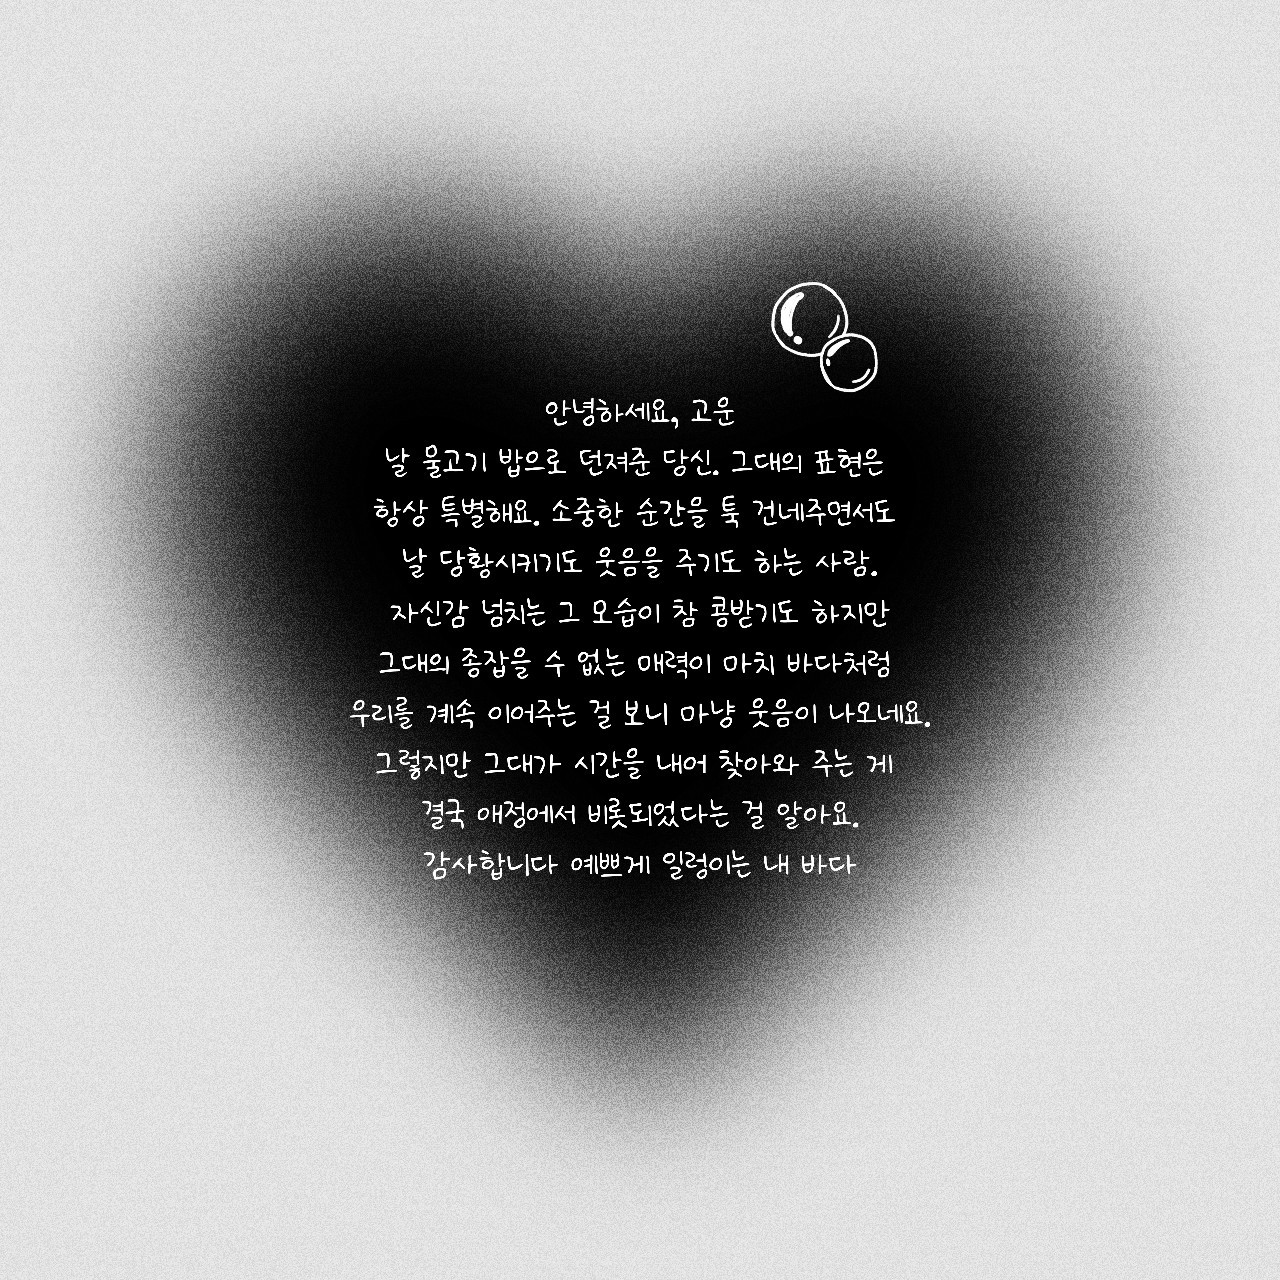 안녕하세요, 고운
날 물고기 밥으로 던져준 당신. 그대의 표현은
항상 특별해요. 소중한 순간을 툭 건네주면서도
날 당황시키기도 웃음을 주기도 하는 사람.
자신감 넘치는 그 모습이 참 콩받기도 하지만
그대의 종잡을 수 없는 매력이 마치 바다처럼
우리를 계속 이어주는 걸 보니 마냥 웃음이 나오네요.
그렇지만 그대가 시간을 내어 찾아와 주는 게
결국 애정에서 비롯되었다는 걸 알아요.
감사합니다 예쁘게 일렁이는 내 바다